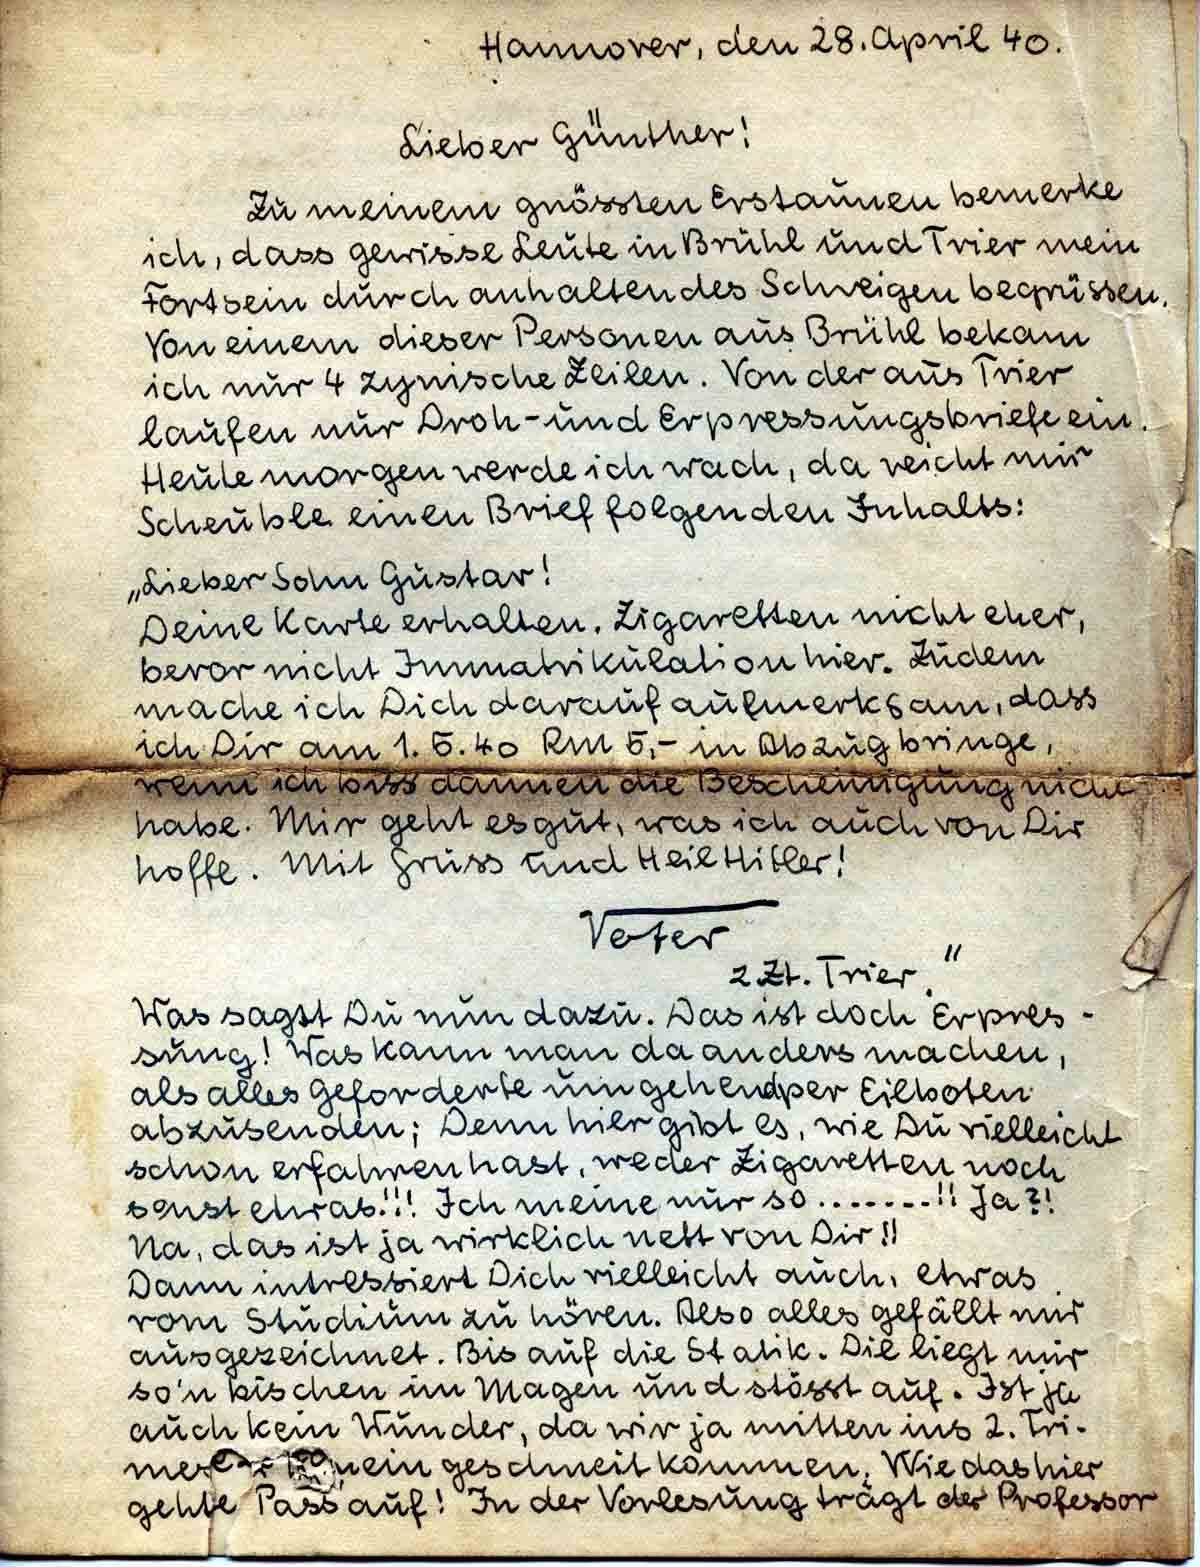 Hannover, den 28. April 40.
Lieber Günther!
Zu meinem grössten Erstaunen bemerke
ich, dass gewisse Leute in Brühl und Trier mein
Fortsein durch anhaltendes Schweigen begrüssen.
Von einem dieser Personen aus Brühl bekam
ich nur 4 zynische Zeilen. Von der aus Trier
laufen nur Droh- und Erpressungsbriefe ein.
Heute morgen werde ich wach, da reicht mir
Scheuble einen Brief folgenden Inhalts:
„Lieber Sohn Gustav!
Deine Karte erhalten. Zigaretten nicht eher,
bevor nicht Immatrikulation hier. Zudem
mache ich Dich darauf aufmerksam, dass
ich Dir am 1.5.40 RM 5,- in Abzug bringe,
wenn ich biss dannen die Bescheinigung nicht
habe. Mir geht es gut, was ich auch von Dir
hoffe. Mit Gruss und Heil Hitler!
Vater
z. Zt. Trier."
Was sagst Du nun dazu. Das ist doch Erpres-
sung! Was kann man da anders machen,
als alles Geforderte umgehend per Eilboten
abzusenden; Denn hier gibt es, wie Du vielleicht
schon erfahren hast, weder Zigaretten noch
sonst etwas!!! Ich meine nur so .......!! Ja?!
Na, das ist ja wirklich nett von Dir!!
Dann intressiert Dich vielleicht auch, etwas
vom Studium zu hören. Also alles gefällt mir
ausgezeichnet. Bis auf die Statik. Die liegt mir
so'n bischen im Magen und stösst auf. Ist ja
auch kein Wunder, da wir ja mitten ins 2. Tri-
mester hinein geschneit kommen. Wie das hier
geht? Pass auf! In der Vorlesung trägt der Professor